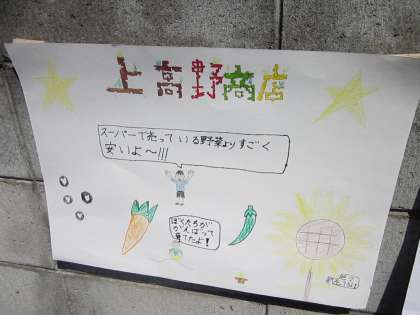 上高野商店
スーパーで売っている野菜よりすごく
安いよ～!!!
ぼくたちが
がんばって
育てたよ!